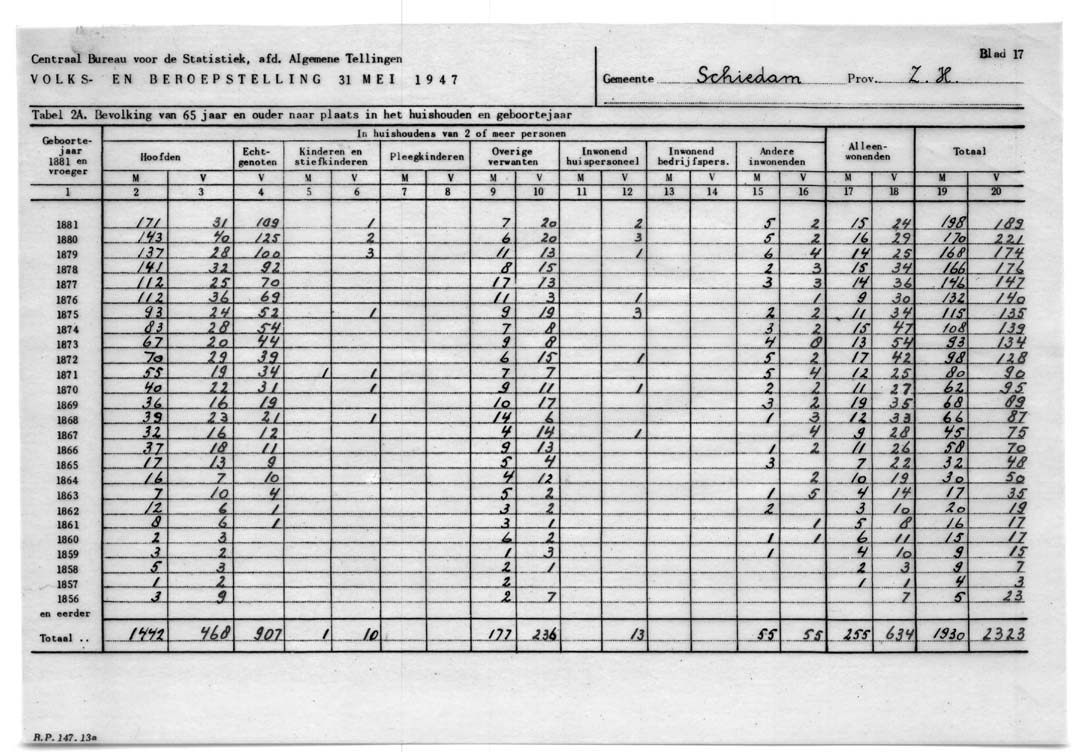 Centraal Bureau voor de Statistiek, afd. Algemene Tellingen
VOLKS- EN BEROEPSTELLING 31 MEI 1947
Gemeente Schiedam Prov. Z. H.
Blad 17
Tabel 2A. Bevolking van 65 jaar en ouder naar plaats in het huishouden en geboortejaar
Geboorte-jaar 1881 en vroeger
In huishoudens van 2 of meer personen
Hoofden Echt-genoten Kinderen en stiefkinderen Pleegkinderen Overige verwanten Inwonend huispersoneel Inwonend bedrijfspers. Andere inwonenden Alleen-wonenden Totaal
M V V M V M V M V M V M V M V M V M V
1 2 3 4 5 6 7 8 9 10 11 12 13 14 15 16 17 18 19 20
1881 171 31 109 1 7 20 2 5 2 15 24 198 189
1880 143 40 125 2 6 20 3 5 2 16 29 170 221
1879 137 28 100 3 11 13 1 6 4 14 25 168 174
1878 141 32 92 8 15 2 3 15 34 166 176
1877 112 25 70 17 13 3 3 14 36 146 147
1876 112 36 69 11 3 1 1 9 30 132 140
1875 93 24 52 1 9 19 3 2 2 11 34 115 135
1874 83 28 54 7 8 3 2 15 47 108 139
1873 67 20 44 9 8 4 8 13 54 93 134
1872 70 29 39 6 15 1 5 2 17 42 98 128
1871 55 19 34 1 1 7 7 5 4 12 25 80 90
1870 40 22 31 1 9 11 1 2 2 11 27 62 95
1869 36 16 19 10 17 3 2 19 35 68 89
1868 39 23 21 1 14 6 1 3 12 33 66 87
1867 32 16 12 4 14 1 4 9 28 45 75
1866 37 18 11 9 13 1 2 11 26 58 70
1865 17 13 9 5 4 3 7 22 32 48
1864 16 7 10 4 12 2 10 19 30 50
1863 7 10 4 5 2 1 5 4 14 17 35
1862 12 6 1 3 2 2 3 10 20 19
1861 8 6 1 3 1 1 5 8 16 17
1860 2 3 6 2 1 1 6 11 15 17
1859 3 2 1 3 1 4 10 9 15
1858 5 3 2 1 2 3 9 7
1857 1 2 2 1 1 4 3
1856 3 9 2 7 7 5 23
en eerder
Totaal .. 1442 468 907 1 10 177 236 13 55 55 255 634 1930 2323
R.P. 147. 13a